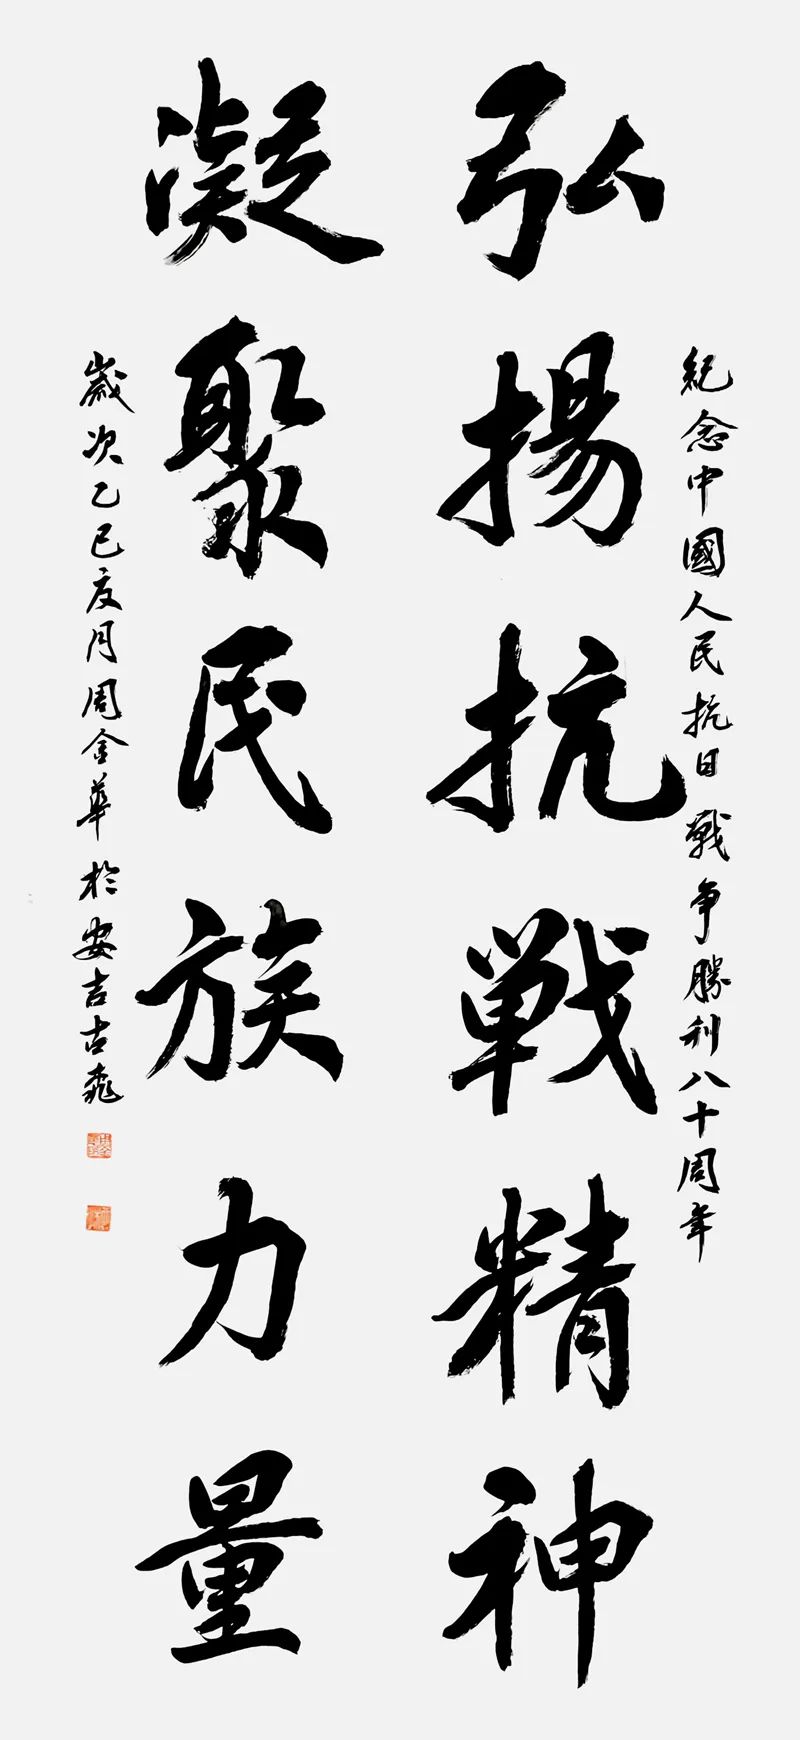 紀念中國人民抗日戰争勝利八十周年
弘揚抗戦精神
凝聚民族力量
歲次乙巳夏月周金華於安吉古